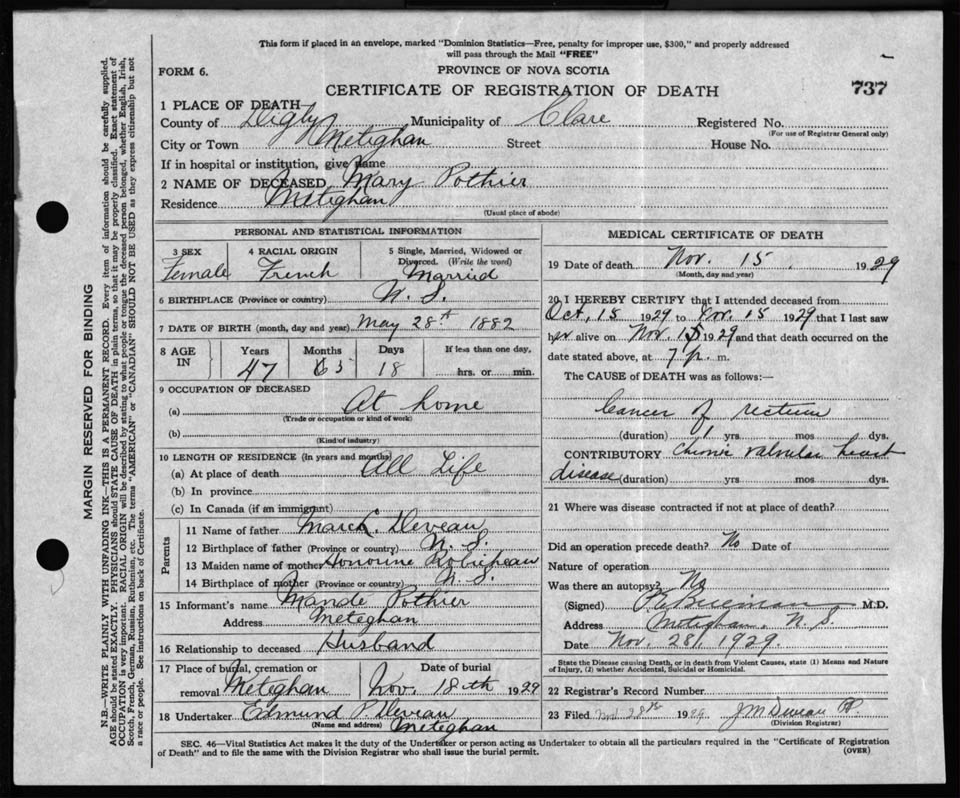 This form if placed in an envelope, marked "Dominion Statistics—Free, penalty for improper use, $300," and properly addressed
will pass through the Mail "FREE"
FORM 6.
PROVINCE OF NOVA SCOTIA
737
CERTIFICATE OF REGISTRATION OF DEATH
1 PLACE OF DEATH—
County of Digby Municipality of Clare Registered No.
(For use of Registrar General only)
City or Town Meteghan Street House No.
If in hospital or institution, give name
2 NAME OF DECEASED Mary Pothier
Residence Meteghan
(Usual place of abode)
PERSONAL AND STATISTICAL INFORMATION
3 SEX Female
4 RACIAL ORIGIN French
5 Single, Married, Widowed or
Divorced. (Write the word)
Married
6 BIRTHPLACE (Province or country) N. S.
7 DATE OF BIRTH (month, day and year) May 28th 1882
8 AGE IN
Years 47
Months 5
Days 18
If less than one day,
hrs. or min.
9 OCCUPATION OF DECEASED
(a) At home
(Trade or occupation or kind of work)
(b)
(Kind of industry)
10 LENGTH OF RESIDENCE (in years and months)
(a) At place of death All Life
(b) In province
(c) In Canada (if an immigrant)
Parents
11 Name of father Marc L. Deveau
12 Birthplace of father (Province or country) N. S.
13 Maiden name of mother Honorine Robicheau
14 Birthplace of mother (Province or country) N. S.
15 Informant's name Mande Pothier
Address Meteghan
16 Relationship to deceased Husband
17 Place of burial, cremation or
removal Meteghan
Date of burial
Nov. 18th 1929
18 Undertaker Edmund P. Deveau
(Name and address) Meteghan
MEDICAL CERTIFICATE OF DEATH
19 Date of death Nov. 15 1929
(Month, day and year)
20 I HEREBY CERTIFY that I attended deceased from
Oct. 15 1929 to Nov. 15 1929 that I last saw
her alive on Nov. 15 1929 and that death occurred on the
date stated above, at 7 p. m.
The CAUSE of DEATH was as follows:—
Cancer of rectum
(duration) 1 yrs. mos dys.
CONTRIBUTORY Chronic valvular heart
disease (duration) yrs. mos. dys.
21 Where was disease contracted if not at place of death?
Did an operation precede death? No Date of
Nature of operation
Was there an autopsy? No
(Signed) M.D.
Address Meteghan, N. S.
Date Nov. 28, 1929.
State the Disease causing Death, or in death from Violent Causes, state (1) Means and Nature
of Injury, (2) whether Accidental, Suicidal or Homicidal.
22 Registrar's Record Number
23 Filed 28th 1929 J M Deveau
(Division Registrar)
SEC. 46—Vital Statistics Act makes it the duty of the Undertaker or person acting as Undertaker to obtain all the particulars required in the "Certificate of Registration
of Death" and to file the same with the Division Registrar who shall issue the burial permit.
(OVER)
MARGIN RESERVED FOR BINDING
N.B.—WRITE PLAINLY WITH UNFADING INK—THIS IS A PERMANENT RECORD. Every item of information should be carefully supplied.
AGE should be stated EXACTLY. PHYSICIANS should STATE CAUSE OF DEATH in plain terms, so that it may be properly classified. Exact statement of
OCCUPATION is very important. RACIAL ORIGIN will be described by stating to what people or tongue the deceased person belonged, whether English, Irish,
Scotch, French, German, Russian, Ruthenian, etc. The terms "AMERICAN" or "CANADIAN" SHOULD NOT BE USED as they express citizenship but not
a race or people. See instructions on back of Certificate.